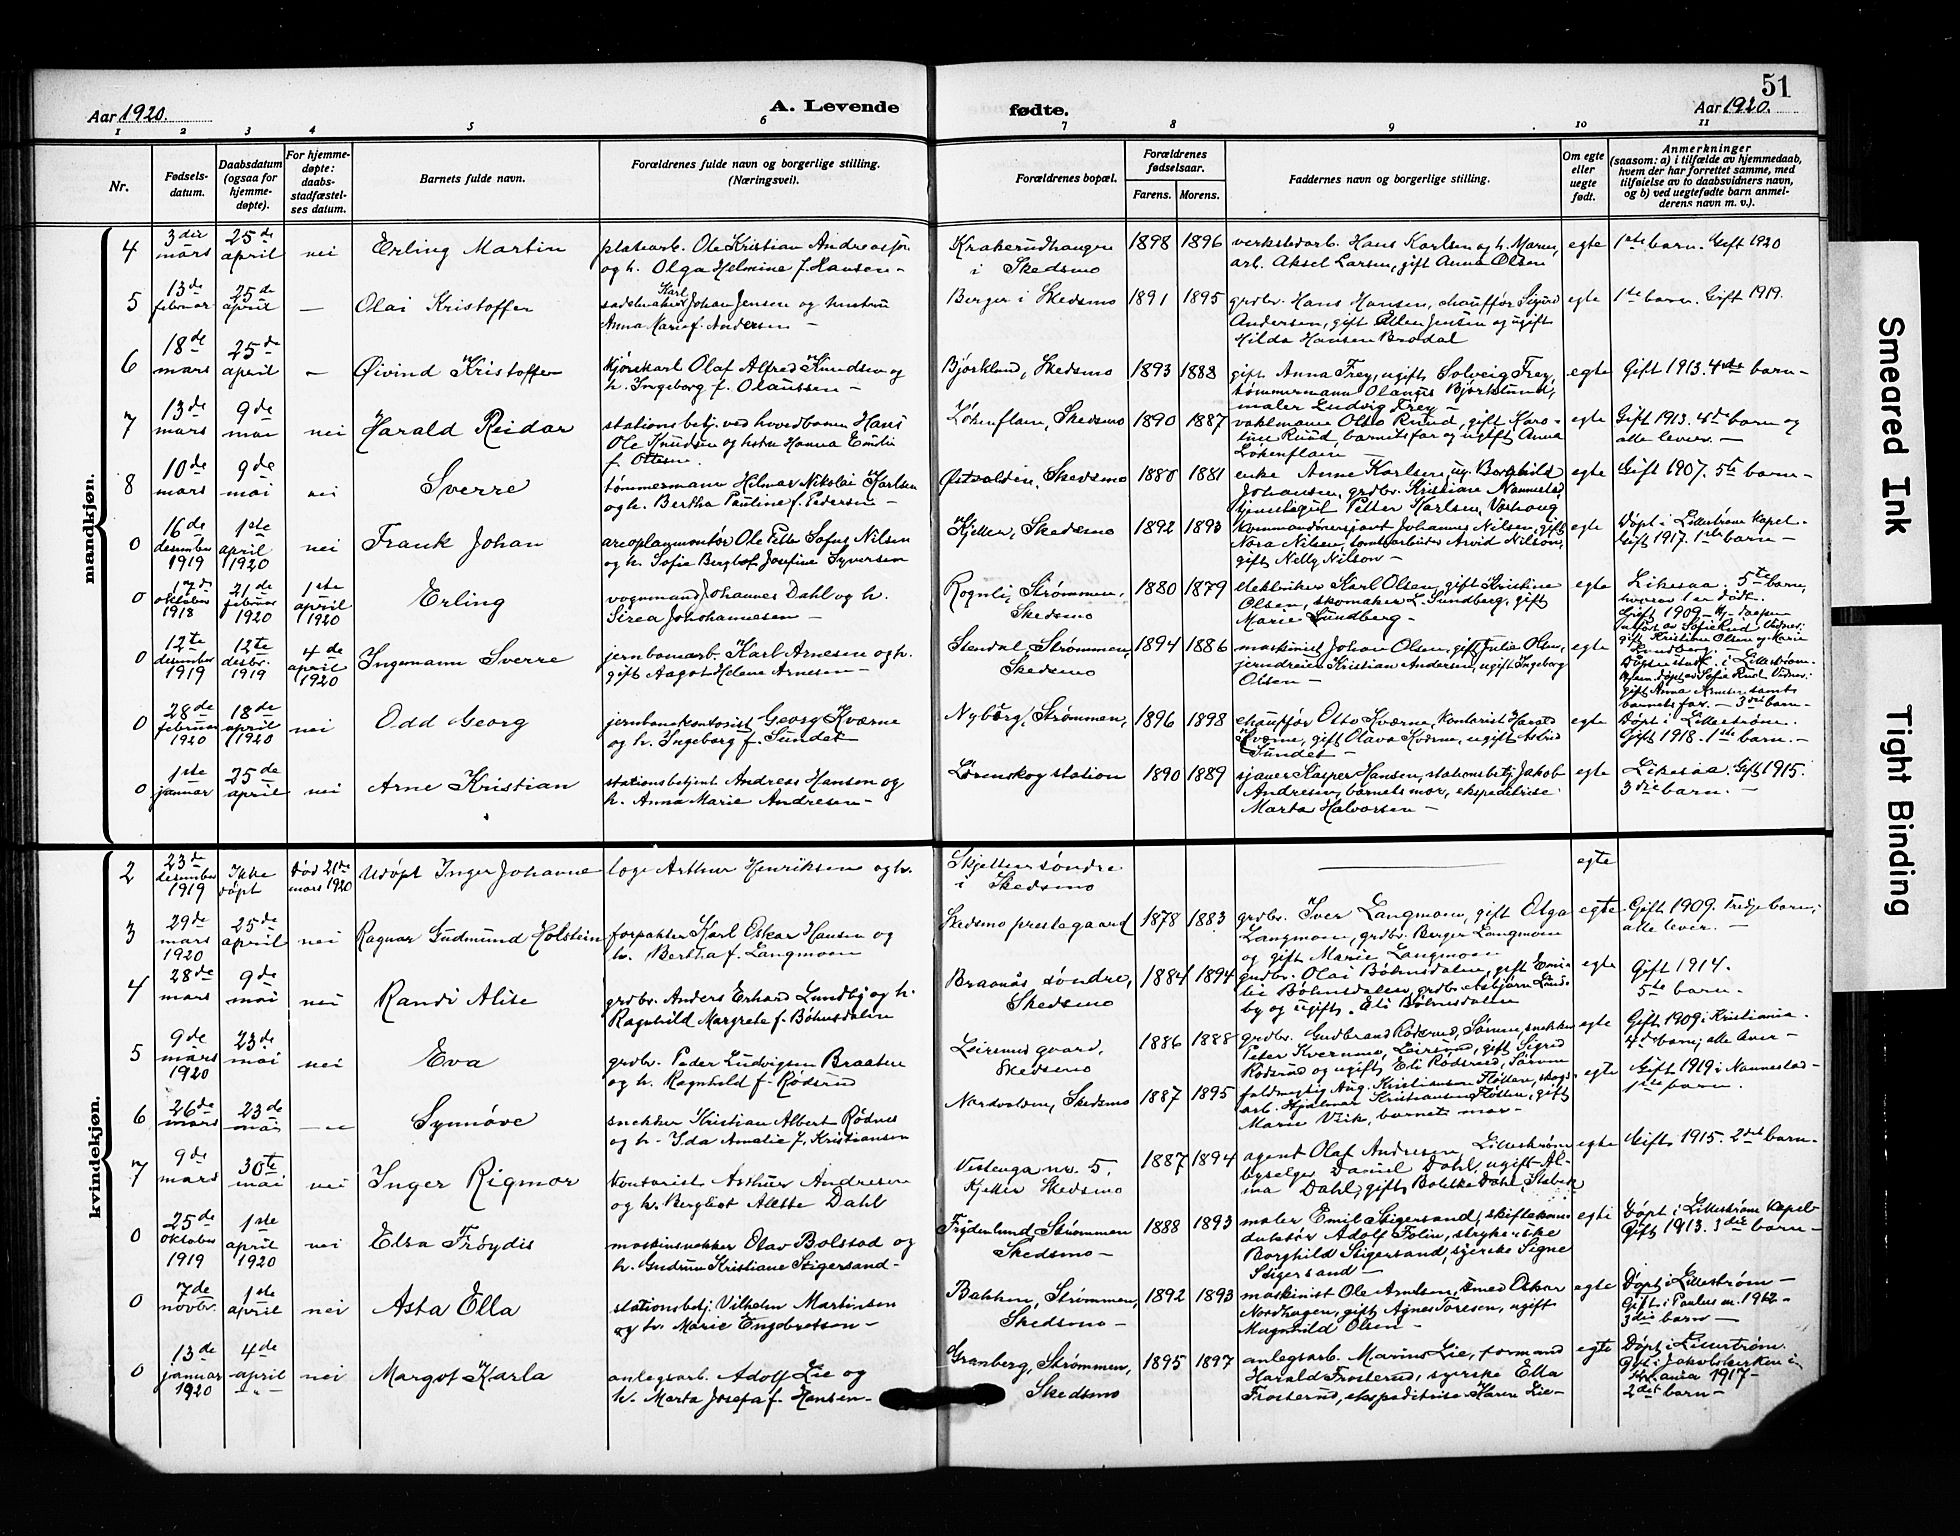 51
Aar 1920.
A. Levende
fødte.
Aar 1920.
1 2 3 4 5 6 7 8 9 10 11
Nr.
Fødsels-
datum.
Daabsdatum
(ogsaa for
hjemme-
døpte).
For hjemme-
døpte:
daabs-
stadfæstel-
ses datum.
Barnets fulde navn.
Forældrenes fulde navn og borgerlige stilling.
(Næringsvei).
Forældrenes bopæl.
Forældrenes
fødselsaar.
Farens. Morens.
Faddernes navn og borgerlige stilling.
Om egte
eller
uegte
født.
Anmerkninger
(saasom: a) i tilfælde av hjemmedaab,
hvem der har forrettet samme, med
tilføielse av to daabsvidners navn,
og b) ved uegtefødte barn anmel-
derens navn m. v.).
mandkjøn.
4
3die
mars
25de
april
nei
Erling Martin
platearb. Ole Kristian Andreassen
og h. Olga Helmine f. Hansen -
Krakerudhaugen
i Skedsmo
1898 1896
verkstedarb. Hans Karlsen og h. Maren,
arb. Aksel Larsen, gift Anna Olsen
egte
1ste barn. Gift 1920
5
13de
februar
25de
april
-
Olai Kristoffer
Karl
sadelmaker Johan Jensen og hustru
Anna Marie f. Andersen -
Berger i Skedsmo
1891 1895
grdbr. Hans Hansen, chauffør Sigurd
Andersen, gift Ellen Jensen og ugift
Hilda Hansen Brodal
egte
1ste barn. Gift 1919.
6
18de
mars
25de
april
-
Øivind Kristoffer
kjørekarl Olaf Alfred Knudsen og
h. Ingeborg f. Olaussen -
Bjørklund, Skedsmo
1893 1888
gift Anna Frey, ugift Solveig Frey,
tømmermann Olaus Bjørklund,
maler Ludvig Frey -
egte
Gift 1913. 4de barn -
7
13de
mars
9de
mai
nei
Harald Reidar
stationsbetj. ved hovedbanen Hans
Ole Knudsen og hstru Hanna Emilie
f. Ottesen.
Løkenflaen, Skedsmo
1890 1887
vaktmann Otto Ruud, gift Karo-
line Ruud, barnets far og ugift Anna
Løkenflaen -
egte
Gift 1913. 4de barn og
alle lever. -
8
10de
mars
9de
mai
nei
Sverre
tømmermann Hilmar Nikolai Karlsen
og h. Bertha Pauline f. Pedersen -
Østvolden, Skedsmo
1880 1881
enke Anne Karlsen, ug. Borghild
Johansen, grdbr. Kristian Nannestad,
Petter Karlsen,
egte
Gift 1907. 5te barn -
0
16de
desember
1919
1ste
april
1920
nei
Frank Johan
aeroplanmontør Ole Petter Sofus Nilsen
og h. Sofie Josefine Syversen
Kjeller, Skedsmo
1892 1893
Johannes Nilsen, gift
Nora Nilsen, tomtearbeider Arvid Nilson,
gift Nelly Nilson -
egte
Døpt i Lillestrøm kapel.
Gift 1917. 1ste barn -
0
17de
oktober
1918
21de
februar
1920
1ste
april
1920
Erling
vognmand Johannes Dahl og h.
Sirea Johohannesen -
Rognli, Strømmen,
Skedsmo
1880 1879
elektriker Karl Olsen, gift Kristine
Olsen, skomaker L. Sundberg, gift
Marie Sundberg -
egte
Likesaa. 5te barn,
hvorav 1 er død.
Gift 1909 - Hj. daapen
utført av Sofie Rud. Vidner:
gift Kristine Olsen og Marie
Sundberg. -
0
12te
desember
1919
12te
desbr.
1919
4de
april
1920
Ingemann Sverre
jernbanearb. Karl Arnesen og h.
gift Aagot Helene Arnesen -
Stendal, Strømmen,
Skedsmo
1894 1886
maskinist Johan Olsen, gift Julie Olsen,
jerndreier Kristian Andersen, ugift Ingeborg
Olsen -
egte
i Lillestrøm.
Hjem. døpt av Sofie Rud. Vidner:
gift Anna Arnesen samt
barnets far. - 3die barn -
0
28de
februar
1920
18de
april
1920
nei
Odd Georg
jernbanekontorist Georg Kværne
og h. Ingeborg f. Sundet
Nyborg, Strømmen,
1896 1898
chauffør Otto Kværne, kontorist Harald
Kværne, gift Olava Kværne, ugift Astrid
Sundet -
egte
Døpt i Lillestrøm.
Gift 1918. 1ste barn. -
0
1ste
januar
25de
april
nei
Arne Kristian
stationsbetjent Andreas Hansen og
h. Anna Marie Andresen -
Lørenskog station
1890 1889
sjauer Kasper Hansen, stationsbetj. Jakob
Andresen, barnets mor, ekspeditrise
Marta Halvorsen -
egte
Likesaa. Gift 1915.
3die barn. -
kvindekjøn.
2
23de
desember
1919
Ikke
døpt
død 21de
mars 1920
Udøpt Inger Johanne
loge Arthur Henriksen og h.
Skjetten søndre
i Skedsmo
egte
3
29de
mars
1920
25de
april
nei
Ragnar Gudmund Holstein
forpakter Karl Oskar Hansen og
h. Bertha f. Langmoen
Skedsmo prestegaard
1878 1883
grdbr. Iver Langmoen, gift Olga
Langmoen, grdbr. Berger Langmoen
og gift Marie Langmoen
egte
Gift 1909. Tredje barn,
alle lever. -
4
28de
mars
9de
mai
nei
Randi Alise
grdbr. Anders Erhard Lundby og h.
Ragnhild Margrete f. Bøhnsdalen
Braanås, søndre,
Skedsmo
1884 1894
grdbr. Olai Bøhnsdalen, gift Emi-
lie Bøhnsdalen, grdbr. Asbjørn Lund-
by og ugift. Eli Bøhnsdalen
egte
Gift 1914.
5te barn -
5
9de
mars
1920
23de
mai
nei
Eva
grdbr. Peder Ludvigsen Braaten
og h. Ragnhild f. Røderud
Leirsund gaard,
Skedsmo
1886 1888
grdbr. Gudbrand Røderud, Sørum, snekker
Peter Kvernmo, Leirsund, gift Sigrid
Røderud og ugift Eli Røderud, Sørum
egte
Gift 1909 i Kristiania.
4de barn, alle lever -
6
26de
mars
23de
mai
-"-
Synnøve
snekker Kristian Albert Rødnes
og h. Ida Amalie f. Kristiansen
Nordvolden, Skedsmo
1887 1895
Aug. Kristiansen Fløtten, skogs-
arb. Hjalmar Kristiansen Fløtten, gift
Marie Vike, barnets mor -
egte
Gift 1919 i Nannestad -
1ste barn.
7
9de
mars
30te
mai
nei
Inger Rigmor
kontorist Arthur Andresen
og h. Bergliot Alette Dahl
Vestenga nr. 5,
Kjeller Skedsmo
1887 1894
agent Olaf Andresen, Lillestrøm
byselger Daniel Dahl, ugift Al-
ma Dahl, gift Bolette Dahl, Stabek
egte
Gift 1915. 2det barn -
0
25de
oktober
1919
1ste
april
1920
nei
Elsa Frøydis
maskinsnekker Olav Bolstad og
h. Gudrun Kristiane Stigersand -
Frydenlund, Strømmen
Skedsmo -
1888 1893
maler Emil Stigersand, skiftekon-
duktør Adolf Folin, strykerske
Borghild Stigersand, syerske Signe
Stigersand -
egte
Døpt i Lillestrøm kapel.
Gift 1913. 3die barn -
0
7de
novbr.
1ste
april
nei
Asta Ella
stationsbetj. Vilhelm Martinsen
og h. Marie Engebretsen -
Bakken, Strømmen,
Skedsmo -
1892 1893
maskinist Ole Arnesen, smed Oskar
Nordhagen, gift Agnes Toresen, ugift
Magnhild Olsen -
egte
Døpt i Lillestrøm -
Gift i Paulus m. 1912 -
3die barn -
0
13de
januar
1920
4de
april
-"-
nei
Margot Karla
anlegsarb. Adolf Lie og
h. Marta Josefa f. Hansen -
Granberg, Strømmen,
Skedsmo
1895 1897
anlegsarb. Marius Lie, formand
Harald Frosterud, syerske Ella
Frosterud, ekspeditrise Karen Lie -
egte
Døpt i Lillestrøm.
Gift i Jakobskirken i
Kr.ania 1917 -
2det barn -
Smeared Ink
Tight Binding